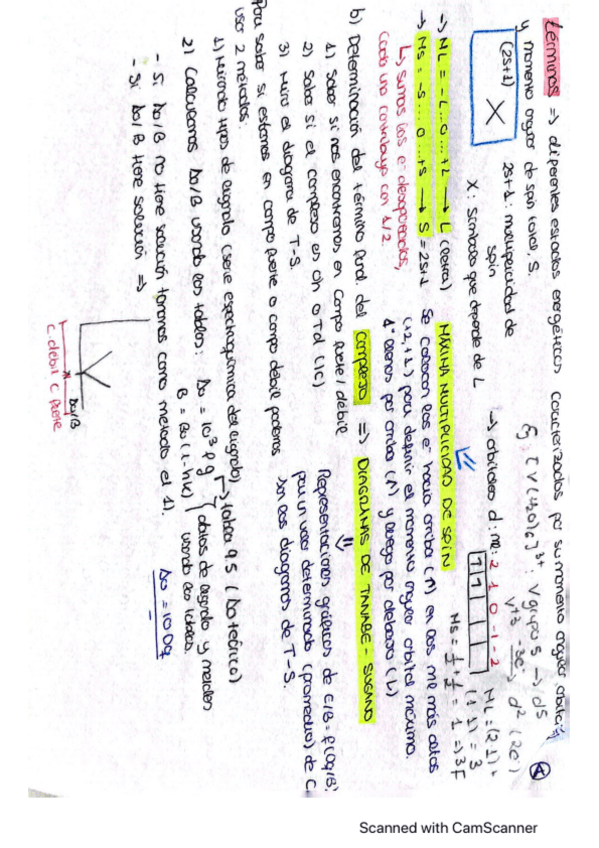 Términos => diferentes estados energéticos caracterizados por su momento angular orbital, L
y momento angular de spin total, S.
(2S+1)
X
2S+1: multiplicidad de
spin
X: símbolo que depende de L
Ej: [V(H2O)6]3+: V grupo 5 -> d5
V+3 -3e-> d2 (2e-)
-> orbitales d: me: 2 1 0 -1 -2
ML = (2·1) +
(1·1) = 3
Ms = 1/2 + 1/2 = 1 => 3F
-> ML = -L...0...+L -> L (letra)
-> Ms = -S...0...+S -> S = 2S+1
↳ sumas los e- desapareados,
cada uno contribuye con 1/2
MÁXIMA MULTIPLICIDAD DE SPIN
Se colocan los e- hacia arriba (↑) en los me más altos
(+2,+1) para definir el momento angular orbital máximo.
1º llenas por arriba (↑) y luego por debajo (↓)
b) Determinación del término fund. del complejo => DIAGRAMAS DE TANABE-SUGANO
1) Saber si nos encontramos en campo fuerte/débil
2) Saber si el complejo es Oh o Td (IC)
3) Miro el diagrama de T-S.
Representaciones gráficas de E/B = f(Δo/B)
para un valor determinado (promedio) de C
son los diagramas de T-S.
Para saber si estamos en campo fuerte o campo débil podemos
usar 2 métodos:
1) Mirando tipos de ligando (serie espectroquímica del ligando)
-> tabla 9.5 (Δo teórico)
2) Calculamos Δo/B usando las tablas: Δo = 10^3 f g
B = Bo (1-hk)
datos de ligando y metales
usando las tablas
- Si Δo/B no tiene solución tomamos como método el 1)
Δo = 10 Dq
- Si Δo/B tiene solución =>
Δo/B
C. débil C. fuerte
A
Scanned with CamScanner